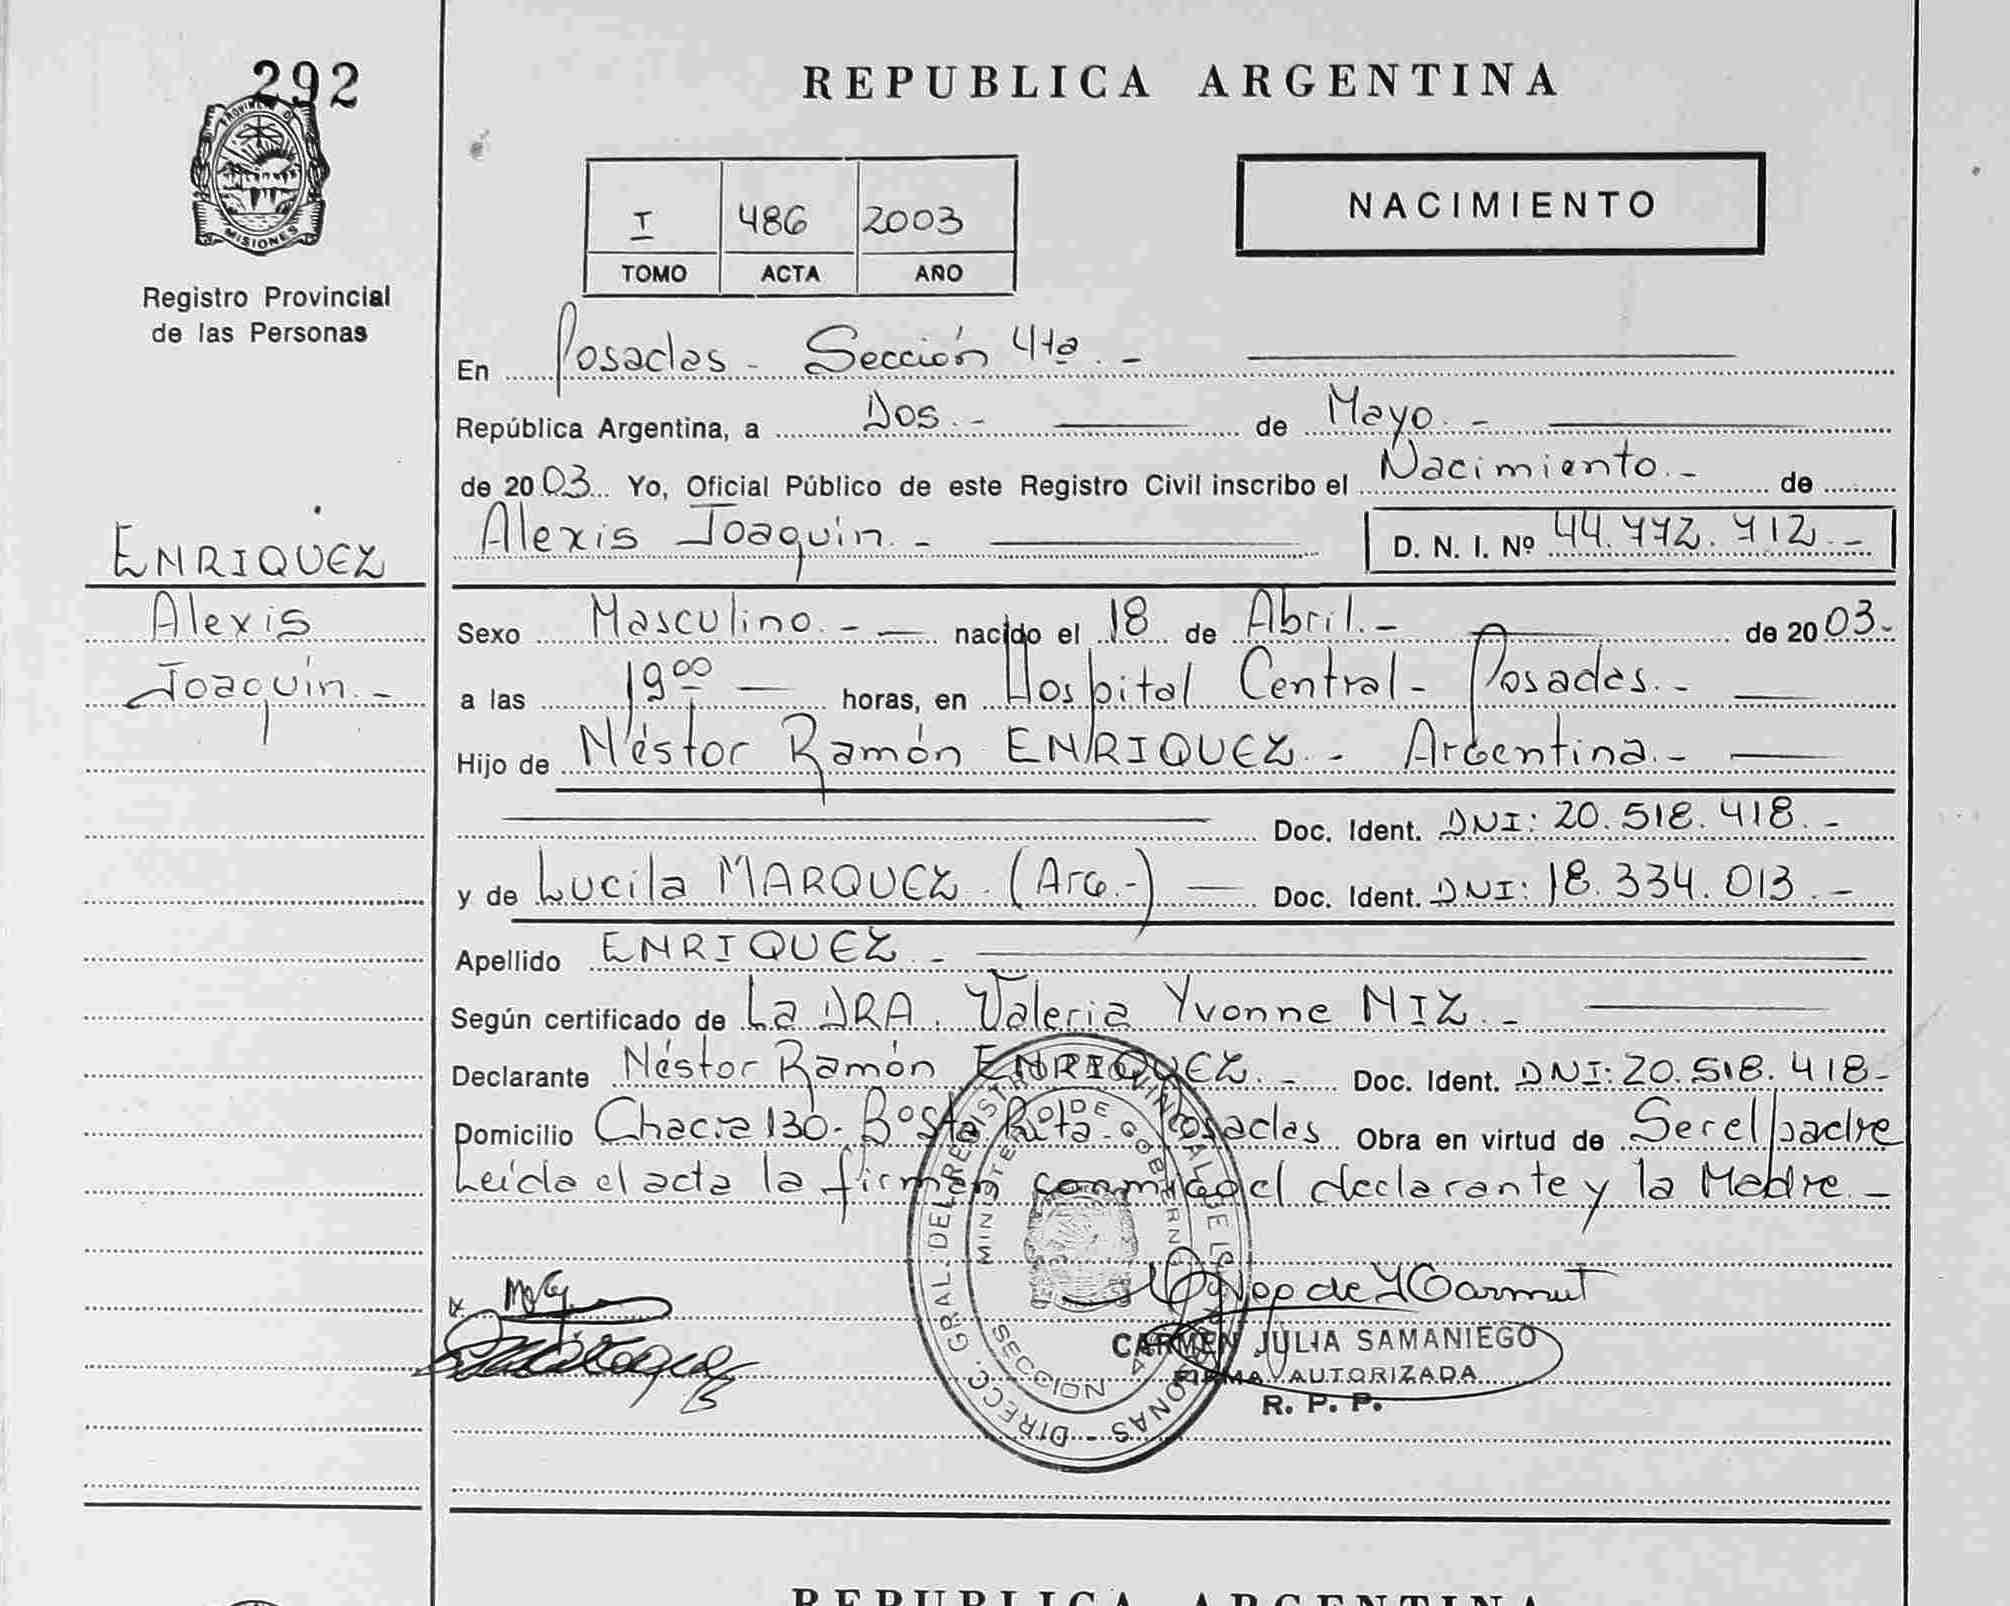 292
PROVINCIA DE
MISIONES
Registro Provincial
de las Personas
REPUBLICA ARGENTINA
I 486 2003
TOMO ACTA AÑO
NACIMIENTO
En Posadas - Sección 4ta. -
República Argentina, a Dos. - de Mayo. -
de 2003. Yo, Oficial Público de este Registro Civil inscribo el Nacimiento. - de
Alexis Joaquín. - D. N. I. Nº 44.772.712. -
ENRIQUEZ
Alexis
Joaquín. -
Sexo Masculino. - nacido el 18 de Abril. - de 2003. -
a las 19⁰⁰ horas, en Hospital Central - Posadas. -
Hijo de Néstor Ramón ENRIQUEZ. - Argentina. -
Doc. Ident. DNI: 20.518.418. -
y de Lucila MARQUEZ. (Arg. -) Doc. Ident. DNI: 18.334.013. -
Apellido ENRIQUEZ. -
Según certificado de La DRA. Valeria Yvonne MIZ. -
Declarante Néstor Ramón ENRIQUEZ. - Doc. Ident. DNI: 20.518.418 -
Domicilio Chacra 130 - Bº Sta Rita - Posadas Obra en virtud de Ser el padre
Leída el acta la firman conmigo el declarante y la Madre. -
DIRECC. GRAL. DEL REGISTRO PROVINCIAL DE LAS PERSONAS -
MINISTERIO DE GOBIERNO
SECCION 4
CARMEN JULIA SAMANIEGO
FIRMA AUTORIZADA
R. P. P.
REPUBLICA ARGENTINA